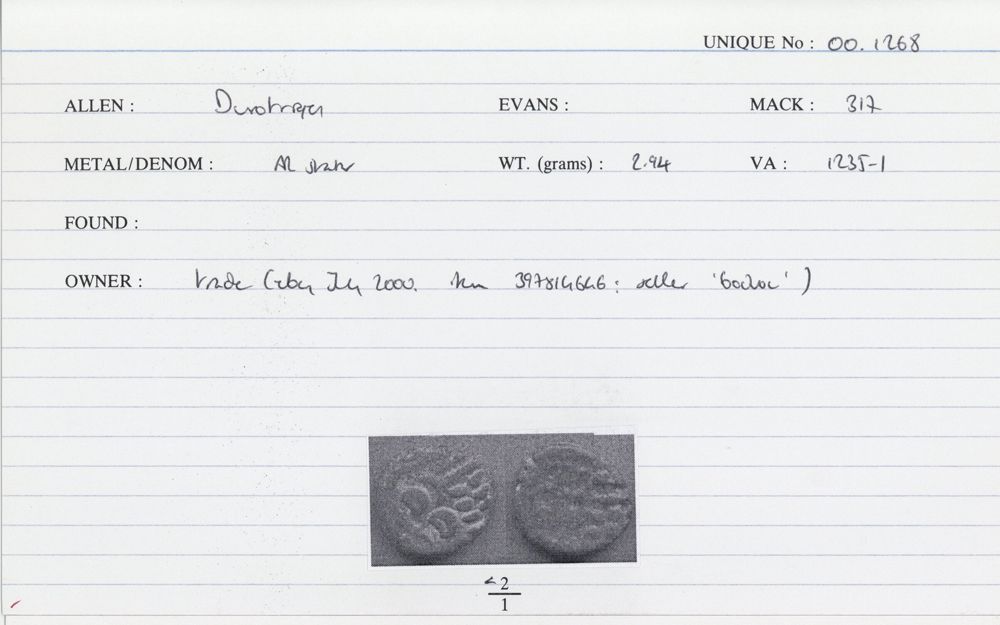 UNIQUE No : 00.1268
ALLEN : Durotriges EVANS : MACK : 317
METAL/DENOM : AR stater WT. (grams) : 2.94 VA : 1235-1
FOUND :
OWNER : trade (eBay July 2000. item 397814646 : seller ' ' )
2
1